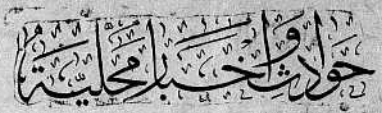 حوادث وأخبار محلية